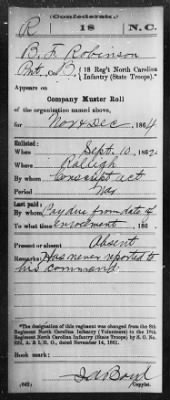 (Confederate.)
R 18 N.C.
B. F. Robinson
Pvt, Co. D, 18 Reg't North Carolina
Infantry (State Troops).*
Appears on
Company Muster Roll
of the organization named above,
for Nov & Dec, 1864
Enlisted:
When Sept. 10, 1862
Where Raleigh
By whom Conscript act
Period War
Last paid:
By whom Pay due from date of
To what time enrolment, 186
Present or absent Absent
Remarks: Has never reported to
his command
*The designation of this regiment was changed from the 8th
Regiment North Carolina Infantry (Volunteers) to the 18th
Regiment North Carolina Infantry (State Troops) by S. O. No.
A. & I. G. O., dated November 14, 1861.
Book mark:
(642) Copyist.